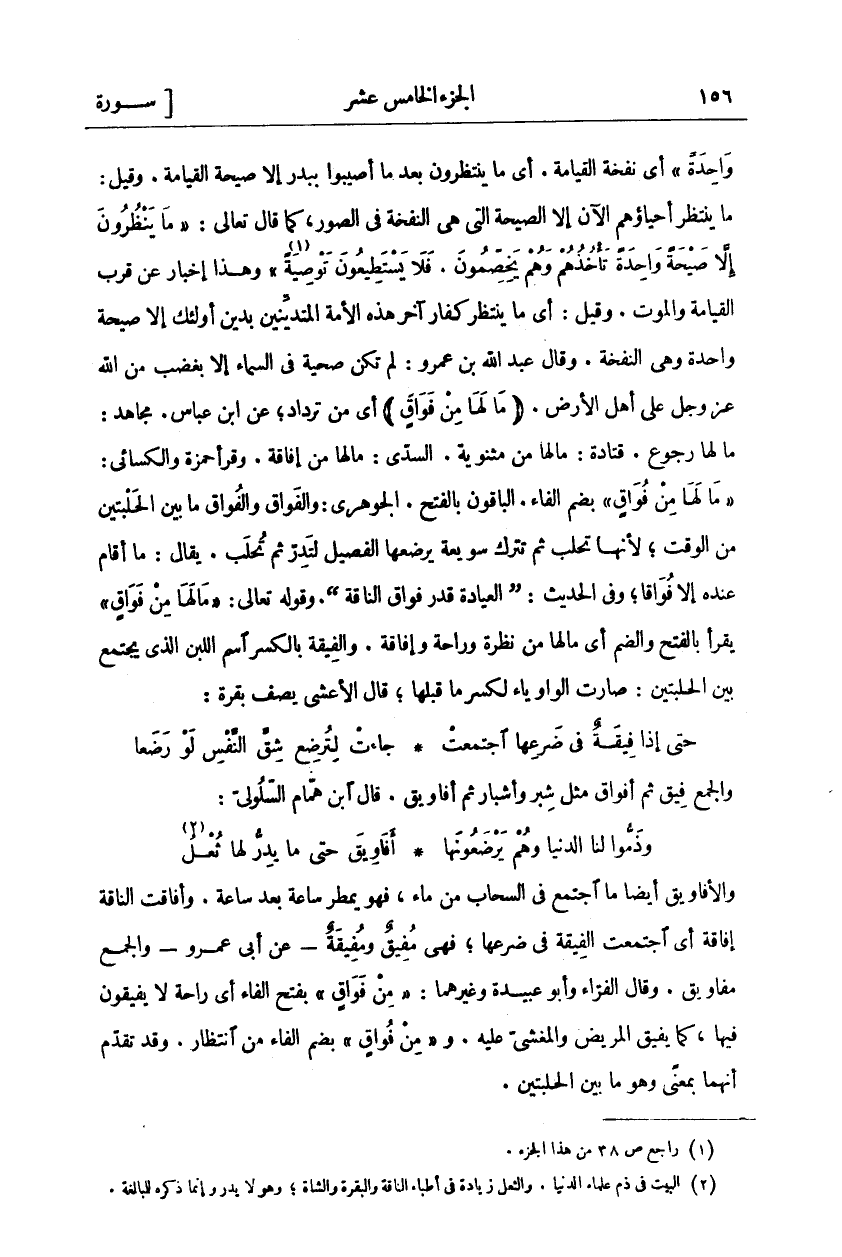 ١٥٦ الجزء الخامس عشر [ سـورة
وَاحِدَةً » أى نفخة القيامة . أى ما ينتظرون بعد ما أصيبوا ببدر إلا صيحة القيامة . وقيل :
ما ينتظر أحياؤهم الآن إلا الصيحة التى هى النفخة فى الصور، كما قال تعالى : « مَا يَنْظُرُونَ
إِلَّا صَيْحَةً وَاحِدَةً تَأْخُذُهُمْ وَهُمْ يَخِصِّمُونَ . فَلَا يَسْتَطِيعُونَ تَوْصِيَةً » (١) وهـذا إخبار عن قرب
القيامة والموت . وقيل : أى ما ينتظر كفار آخر هذه الأمة المتديّنين بدين أولئك إلا صيحة
واحدة وهى النفخة . وقال عبد الله بن عمرو : لم تكن صحية فى السماء إلا بغضب من الله
عز وجل على أهل الأرض . ﴿ مَا لَهَا مِنْ فَوَاقٍ ﴾ أى من ترداد؛ عن ابن عباس. مجاهد :
ما لها رجوع . قتادة : مالها من مثنوية . السدّى : مالها من إفاقة . وقرأ حمزة والكسائى :
« مَا لَهَا مِنْ فُوَاقٍ» بضم الفاء . الباقون بالفتح . الجوهرى : والفَواق والفُواق ما بين الحَلْبتين
من الوقت ؛ لأنهـا تحلب ثم تترك سويعة يرضعها الفصيل لتَدِرّ ثم تُحلَب . يقال : ما أقام
عنده إلا فُوَاقا؛ وفى الحديث : ” العيادة قدر فواق الناقة “. وقوله تعالى: «مَالَهَا مِنْ فَوَاقٍ»
يقرأ بالفتح والضم أى مالها من نظرة وراحة وإفاقة . والفِيقة بالكسر آسم اللبن الذى يجتمع
بين الحلبتين : صارت الواو ياء لكسر ما قبلها ؛ قال الأعشى يصف بقرة :
حتى إذا فِيقَـةٌ فى ضَرعِها آجتمعتْ * جاءتْ لِتُرضِع شِقَّ النَّفْسِ لَوْ رَضَعا
والجمع فِيق ثم أفواق مثل شِبر وأشبار ثم أفاويق . قال آبن همّام السَّلُولىّ :
وَذَمُّوا لنا الدنيا وهُمْ يَرْضَعُونَها * أَفَاوِيقَ حتى ما يدِرُّ لها ثُعْـلُ (٢)
والأفاويق أيضا ما آجتمع فى السحاب من ماء ، فهو يمطر ساعة بعد ساعة . وأفاقت الناقة
إفاقة أى آجتمعت الفِيقة فى ضرعها ؛ فهى مُفِيقٌ ومُفِيقَةٌ – عن أبى عمـرو – والجمـع
مفاويق . وقال الفرّاء وأبو عبيـدة وغيرهما : « مِنْ فَوَاقٍ » بفتح الفاء أى راحة لا يفيقون
فيها ، كما يفيق المريض والمغشىّ عليه . و « مِنْ فُوَاقٍ » بضم الفاء من آنتظار . وقد تقدّم
أنهما بمعنًى وهو ما بين الحلبتين .
(١) راجع ص ٣٨ من هذا الجزء .
(٢) البيت فى ذم علماء الدنيا . والثعل زيادة فى أطباء الناقة والبقرة والشاة ؛ وهو لا يدر وإنما ذكره للبالغة .